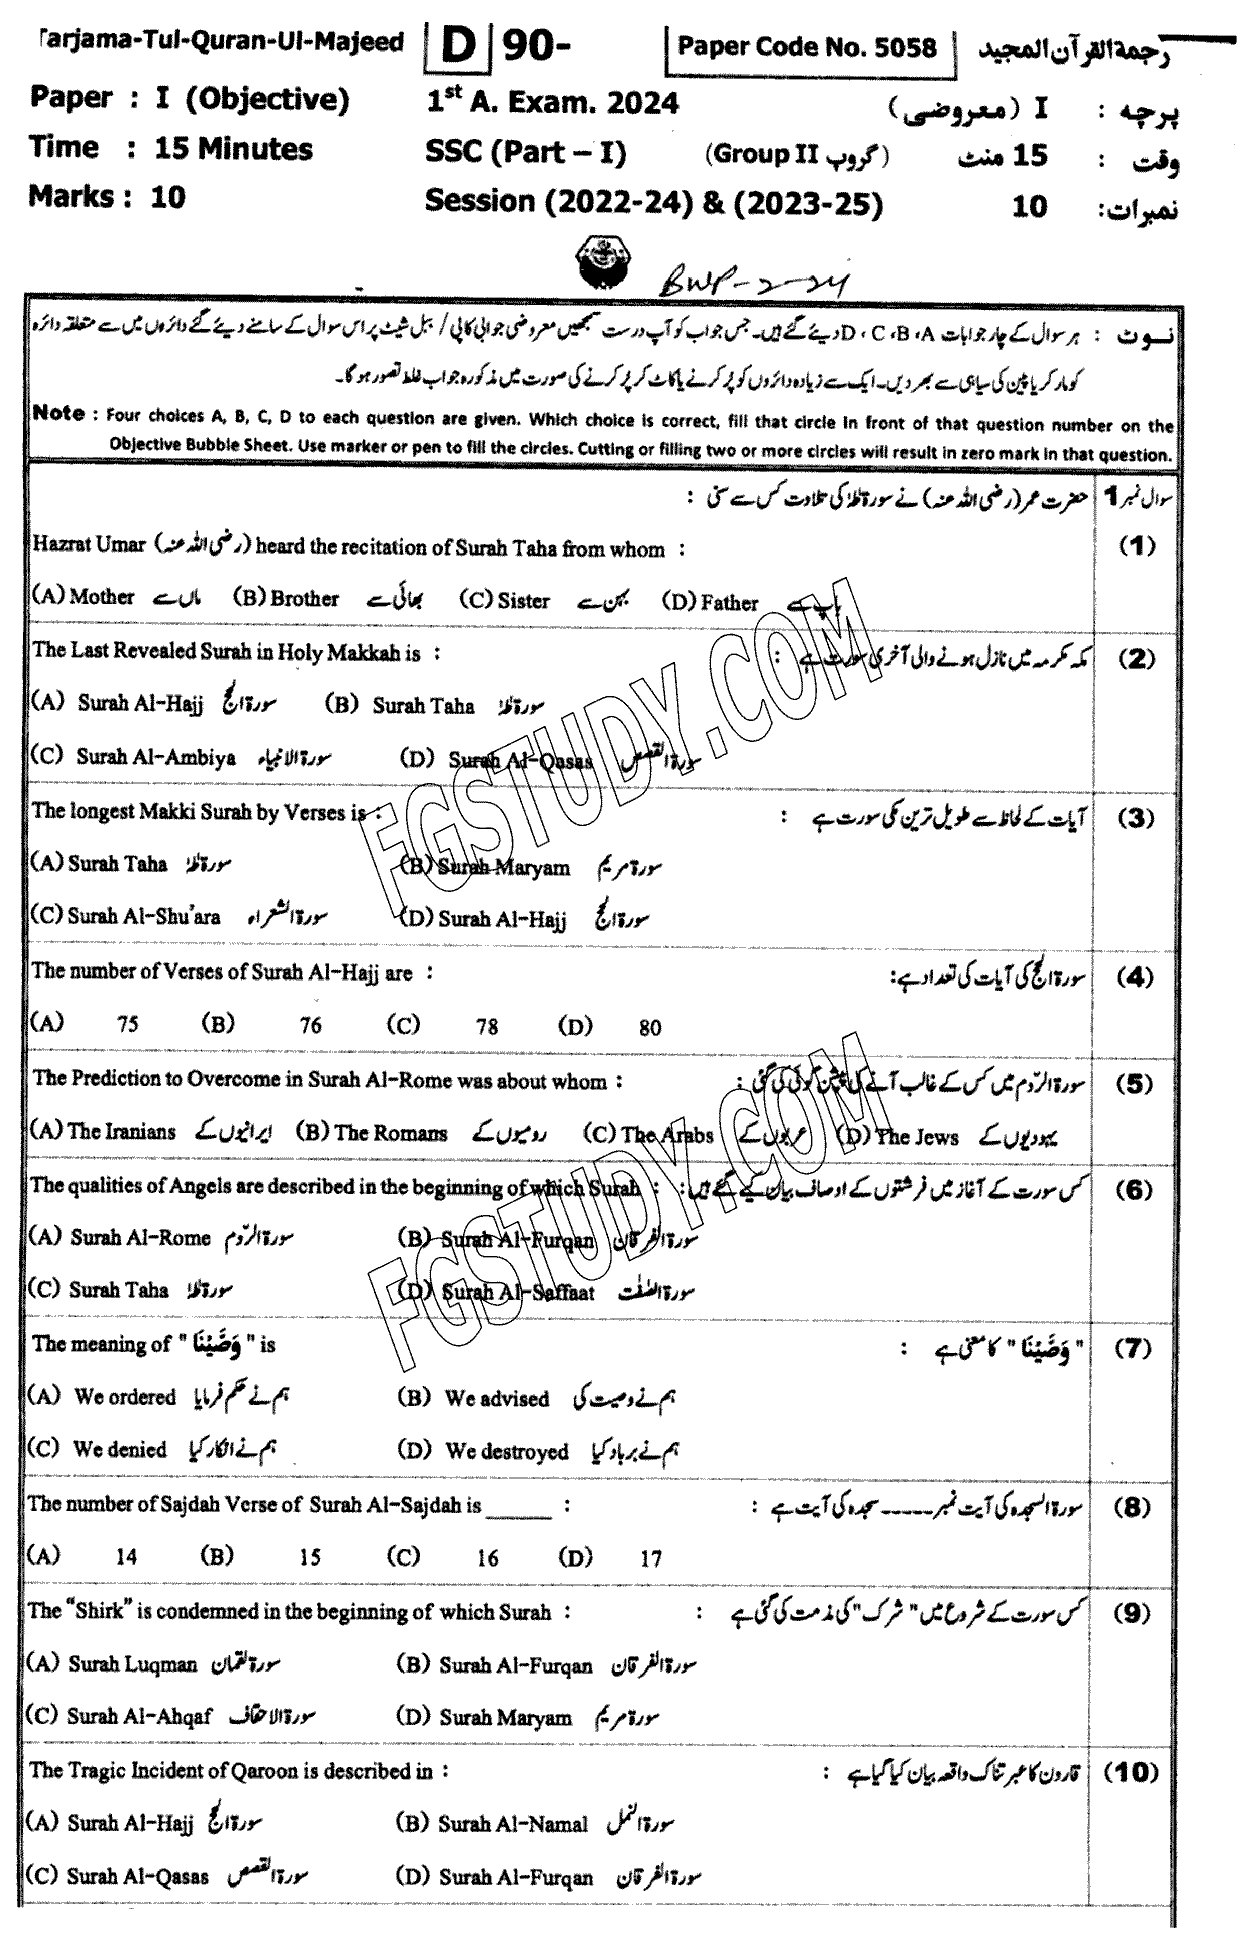 Tarjama-Tul-Quran-Ul-Majeed D 90- Paper Code No. 5058 رجمۃ القرآن المجید
Paper : I (Objective) 1st A. Exam. 2024 پرچہ : I (معروضی)
Time : 15 Minutes SSC (Part – I) (Group II گروپ) وقت : 15 منٹ
Marks : 10 Session (2022-24) & (2023-25) نمبرات: 10
BWP-2-24
نوٹ : ہر سوال کے چار جوابات D ، C ،B ،A دیئے گئے ہیں۔ جس جواب کو آپ درست سمجھیں معروضی جوابی کاپی / ببل شیٹ پر اس سوال کے سامنے دیئے گئے دائروں میں سے متعلقہ دائرہ
کو مارکر یا پین کی سیاہی سے بھر دیں۔ ایک سے زیادہ دائروں کو پُر کرنے یا کاٹ کر پُر کرنے کی صورت میں مذکورہ جواب غلط تصور ہوگا۔
Note : Four choices A, B, C, D to each question are given. Which choice is correct, fill that circle in front of that question number on the
Objective Bubble Sheet. Use marker or pen to fill the circles. Cutting or filling two or more circles will result in zero mark in that question.
سوال نمبر 1 حضرت عمر (رضی اللہ عنہ) نے سورۃ طٰہٰ کی تلاوت کس سے سنی :
Hazrat Umar (رضی اللہ عنہ) heard the recitation of Surah Taha from whom : (1)
(A) Mother ماں سے (B) Brother بھائی سے (C) Sister بہن سے (D) Father باپ سے
The Last Revealed Surah in Holy Makkah is : مکہ مکرمہ میں نازل ہونے والی آخری سورت ہے : (2)
(A) Surah Al-Hajj سورۃ الحج (B) Surah Taha سورۃ طٰہٰ
(C) Surah Al-Ambiya سورۃ الانبیاء (D) Surah Al-Qasas سورۃ القصص
The longest Makki Surah by Verses is : آیات کے لحاظ سے طویل ترین مکی سورت ہے : (3)
(A) Surah Taha سورۃ طٰہٰ (B) Surah Maryam سورۃ مریم
(C) Surah Al-Shu'ara سورۃ الشعراء (D) Surah Al-Hajj سورۃ الحج
The number of Verses of Surah Al-Hajj are : سورۃ الحج کی آیات کی تعداد ہے: (4)
(A) 75 (B) 76 (C) 78 (D) 80
The Prediction to Overcome in Surah Al-Rome was about whom : سورۃ الرّوم میں کس کے غالب آنے کی پیشن گوئی کی گئی : (5)
(A) The Iranians ایرانیوں کے (B) The Romans رومیوں کے (C) The Arabs عربوں کے (D) The Jews یہودیوں کے
The qualities of Angels are described in the beginning of which Surah : کس سورت کے آغاز میں فرشتوں کے اوصاف بیان کیے گئے ہیں : (6)
(A) Surah Al-Rome سورۃ الرّوم (B) Surah Al-Furqan سورۃ الفرقان
(C) Surah Taha سورۃ طٰہٰ (D) Surah Al-Saffaat سورۃ الصّٰفّٰت
The meaning of "وَصَّيْنَا" is "وَصَّيْنَا" کا معنی ہے : (7)
(A) We ordered ہم نے حکم فرمایا (B) We advised ہم نے وصیت کی
(C) We denied ہم نے انکار کیا (D) We destroyed ہم نے برباد کیا
The number of Sajdah Verse of Surah Al-Sajdah is _____ : سورۃ السجدہ کی آیت نمبر ----- سجدہ کی آیت ہے : (8)
(A) 14 (B) 15 (C) 16 (D) 17
The "Shirk" is condemned in the beginning of which Surah : کس سورت کے شروع میں "شرک" کی مذمت کی گئی ہے : (9)
(A) Surah Luqman سورۃ لقمان (B) Surah Al-Furqan سورۃ الفرقان
(C) Surah Al-Ahqaf سورۃ الاحقاف (D) Surah Maryam سورۃ مریم
The Tragic Incident of Qaroon is described in : قارون کا عبرتناک واقعہ بیان کیا گیا ہے : (10)
(A) Surah Al-Hajj سورۃ الحج (B) Surah Al-Namal سورۃ النمل
(C) Surah Al-Qasas سورۃ القصص (D) Surah Al-Furqan سورۃ الفرقان
FGSTUDY.COM
FGSTUDY.COM